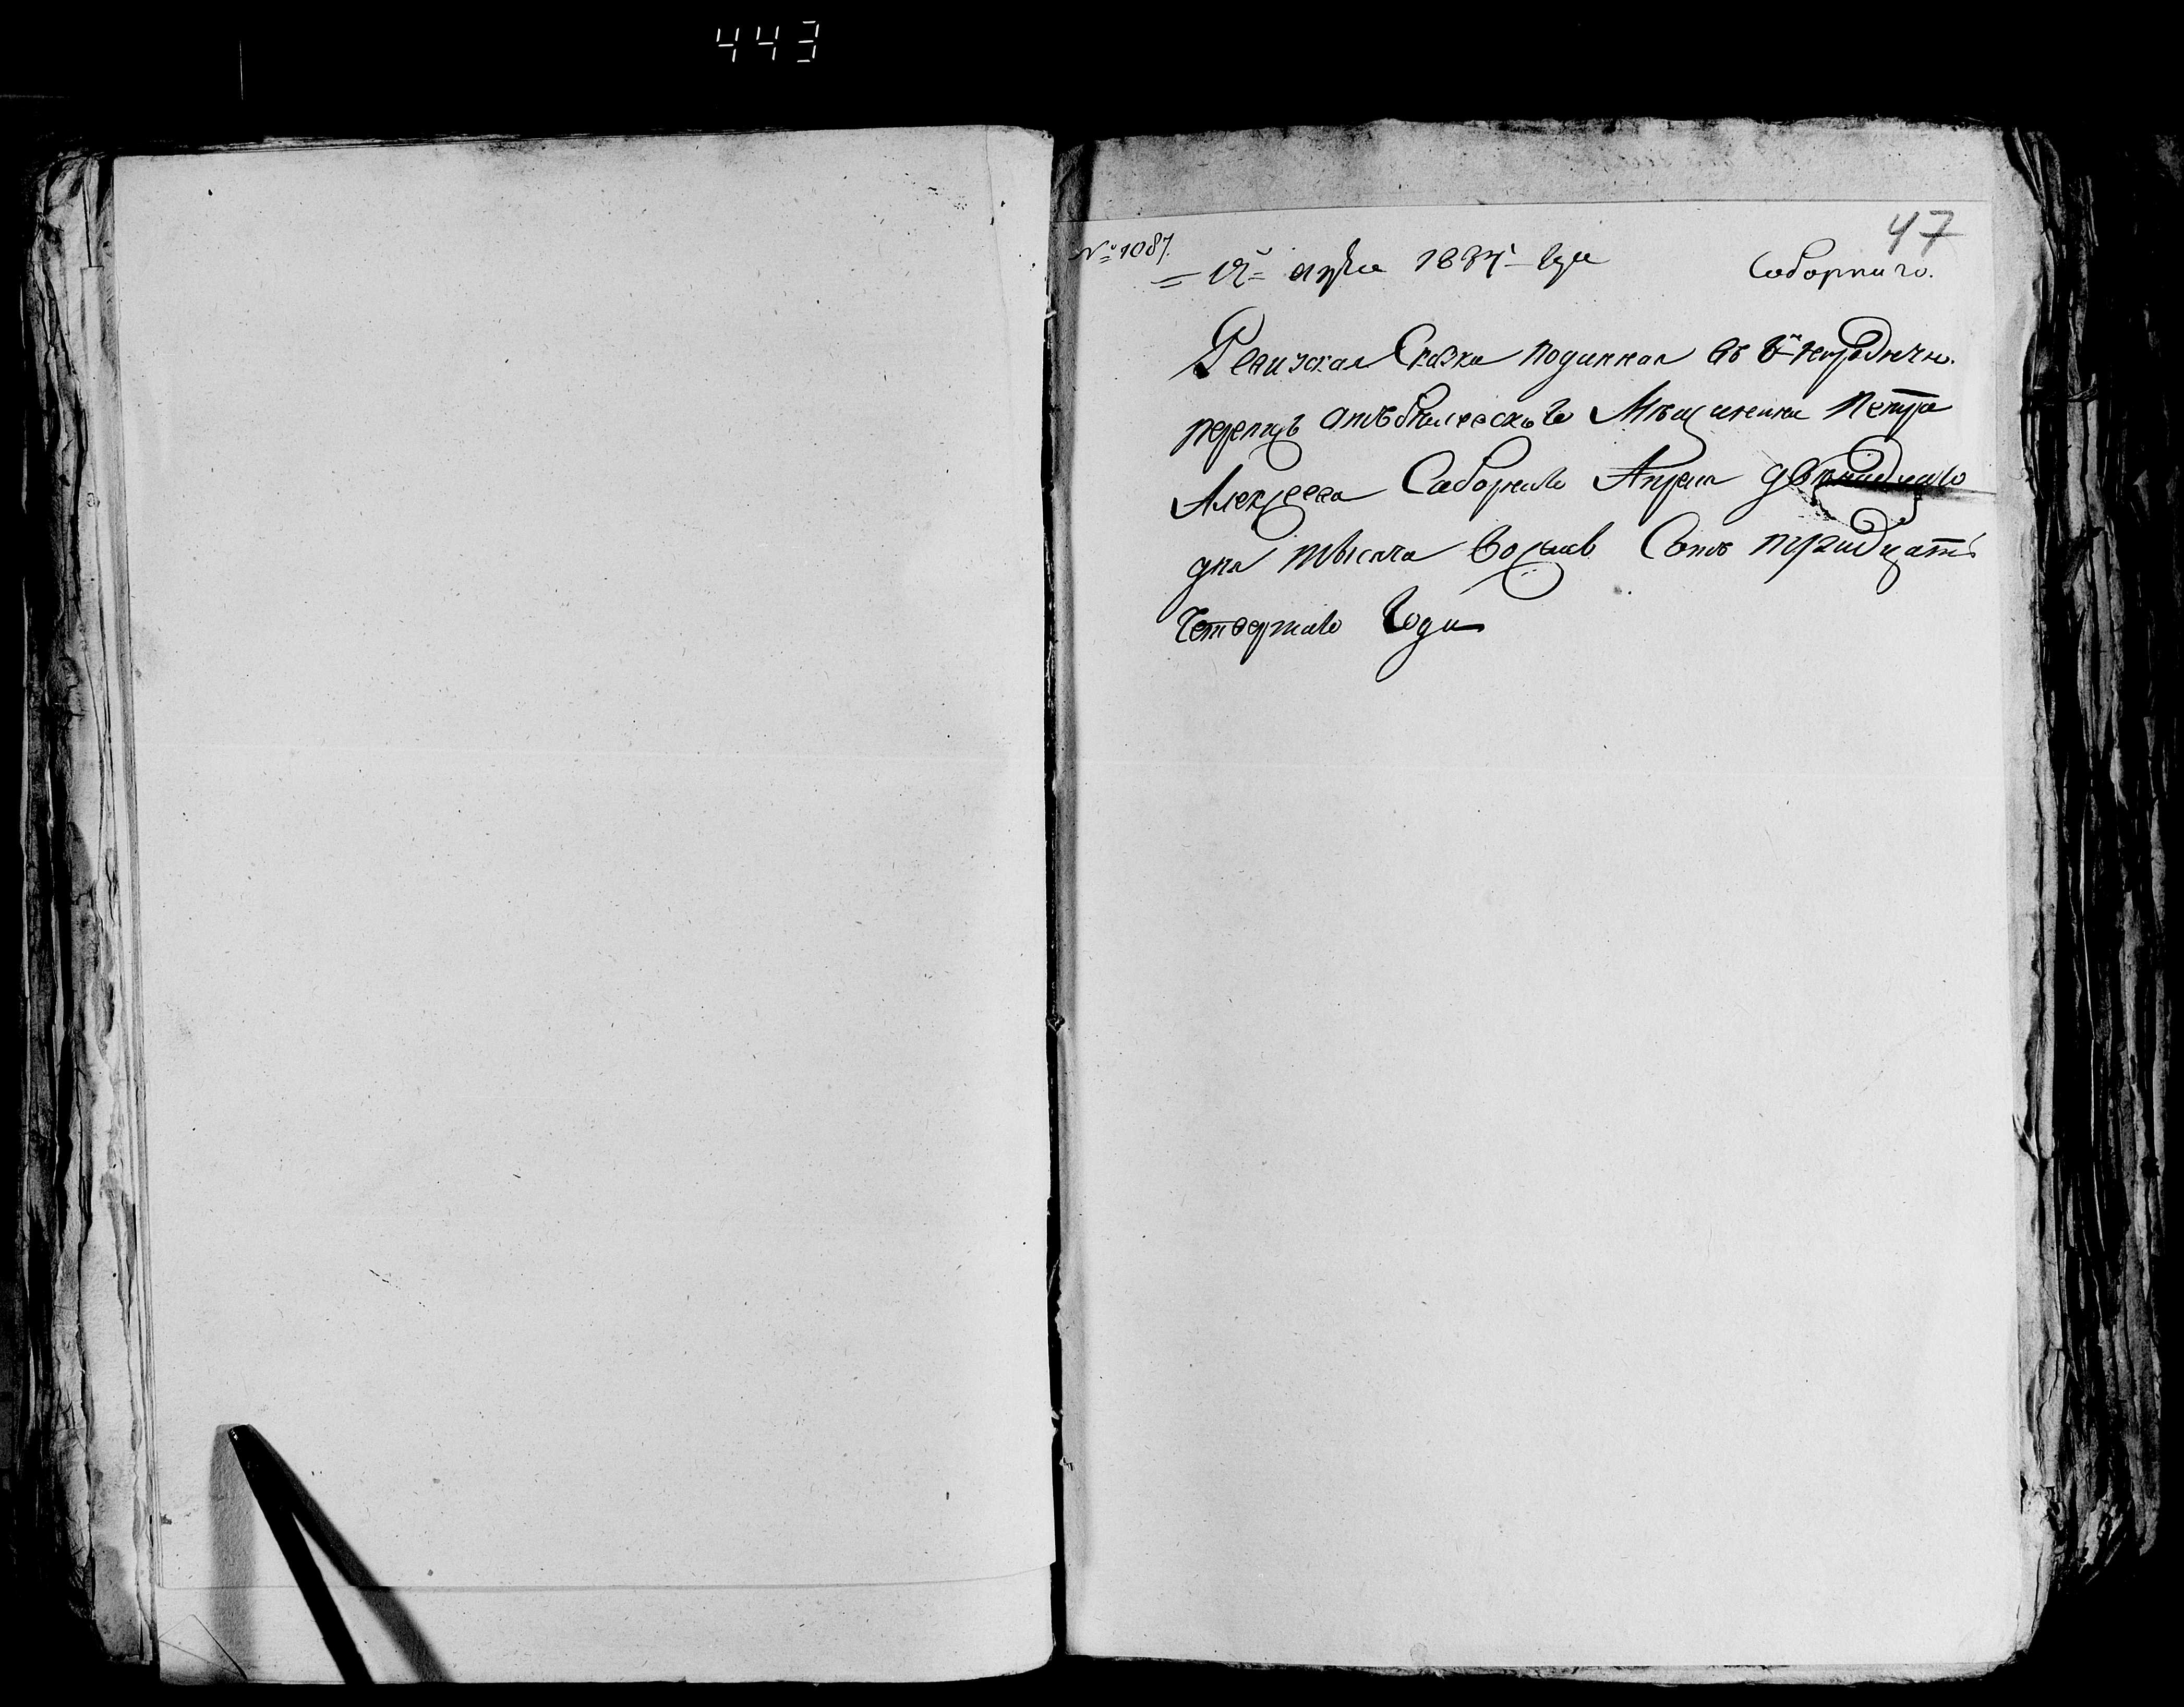 443
47
№ 1087.
12 апреля 1834 года
Соборнаго.
Ревизская Сказка поданная въ 8 народную
перепись отъ Мѣщанина Петра
Алексеева Саборнаво Апреля двенадцатаво
дня тысяча восемь Сотъ тридцать
Четвертаво Года